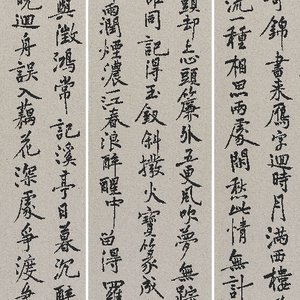 寄錦書來雁字迴時月滿西樓
流一種相思兩處閑愁此情無計
頭却上心頭簾外五更風吹夢無蹤
誰同記得玉釵斜撥火寶篆成
雨潤煙濃一江春浪醉醒中留得羅
與徵鴻常記溪亭日暮沉醉
晚迴舟誤入藕花深處爭渡